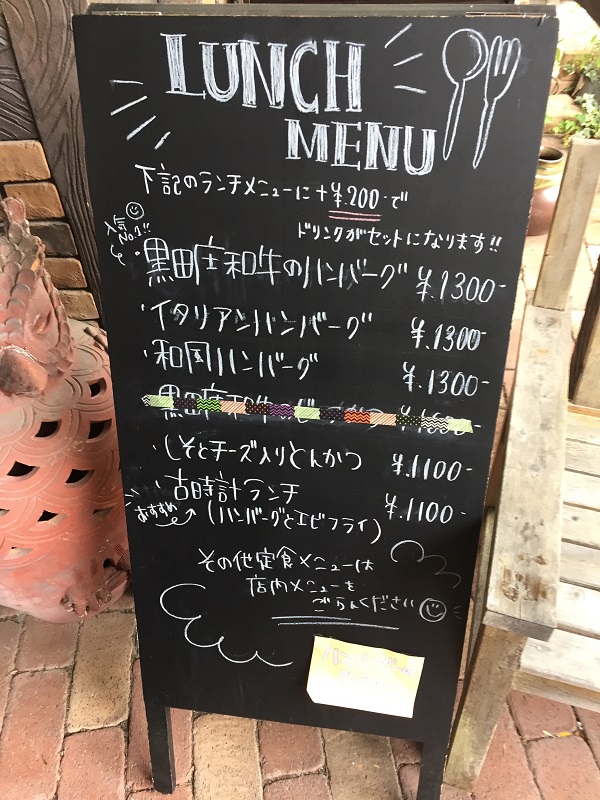 LUNCH
MENU
下記のランチメニューに+¥.200-で
ドリンクがセットになります!!
人気
No.1!!
・黒田庄和牛のハンバーグ ¥.1300-
・イタリアンハンバーグ ¥.1300-
・和風ハンバーグ ¥.1300-
黒田庄和牛の
・しそとチーズ入りとんかつ ¥.1100-
・古時計ランチ ¥.1100-
おすすめ (ハンバーグとエビフライ)
その他定食メニューは
店内メニューを
ごらんください